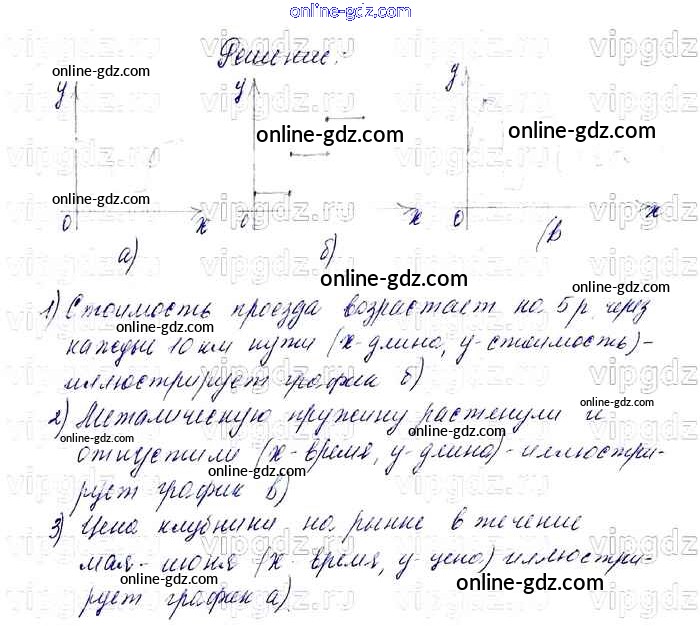 online-gdz.com
Решение:
y y y
online-gdz.com online-gdz.com
online-gdz.com online-gdz.com
online-gdz.com
0 x 0 x 0 x
а) б) (в
online-gdz.com
1) Стоимость проезда возрастает на 5 р. через
каждые 10 км пути (x-длина, y-стоимость)-
иллюстрирует график б)
online-gdz.com
2) Металическую пружину растянули и
online-gdz.com online-gdz.com
отпустили (x-время, y-длина)-иллюстри-
online-gdz.com
рует график в)
online-gdz.com
3) Цена клубники на рынке в течение
online-gdz.com
мая-июня (x-время, y-цена) иллюстри-
online-gdz.com online-gdz.com
рует график а).